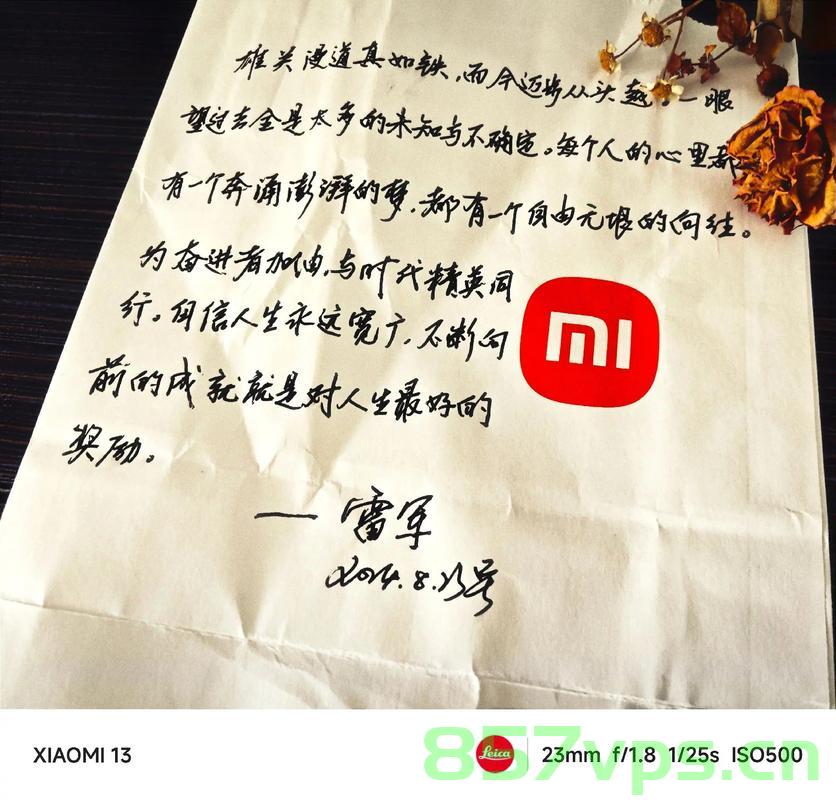 雄关漫道真如铁，而今迈步从头越。一眼
望过去全是太多的未知与不确定。每个人的心里都
有一个奔涌澎湃的梦，都有一个自由无垠的向往。
为奋进者加油，与时代精英同
行。自信人生永远宽广，不断向
前的成就就是对人生最好的
奖励。
— 雷军
2024.8.23号
mi
XIAOMI 13
Leica
23mm f/1.8 1/25s ISO500
857vps.cn